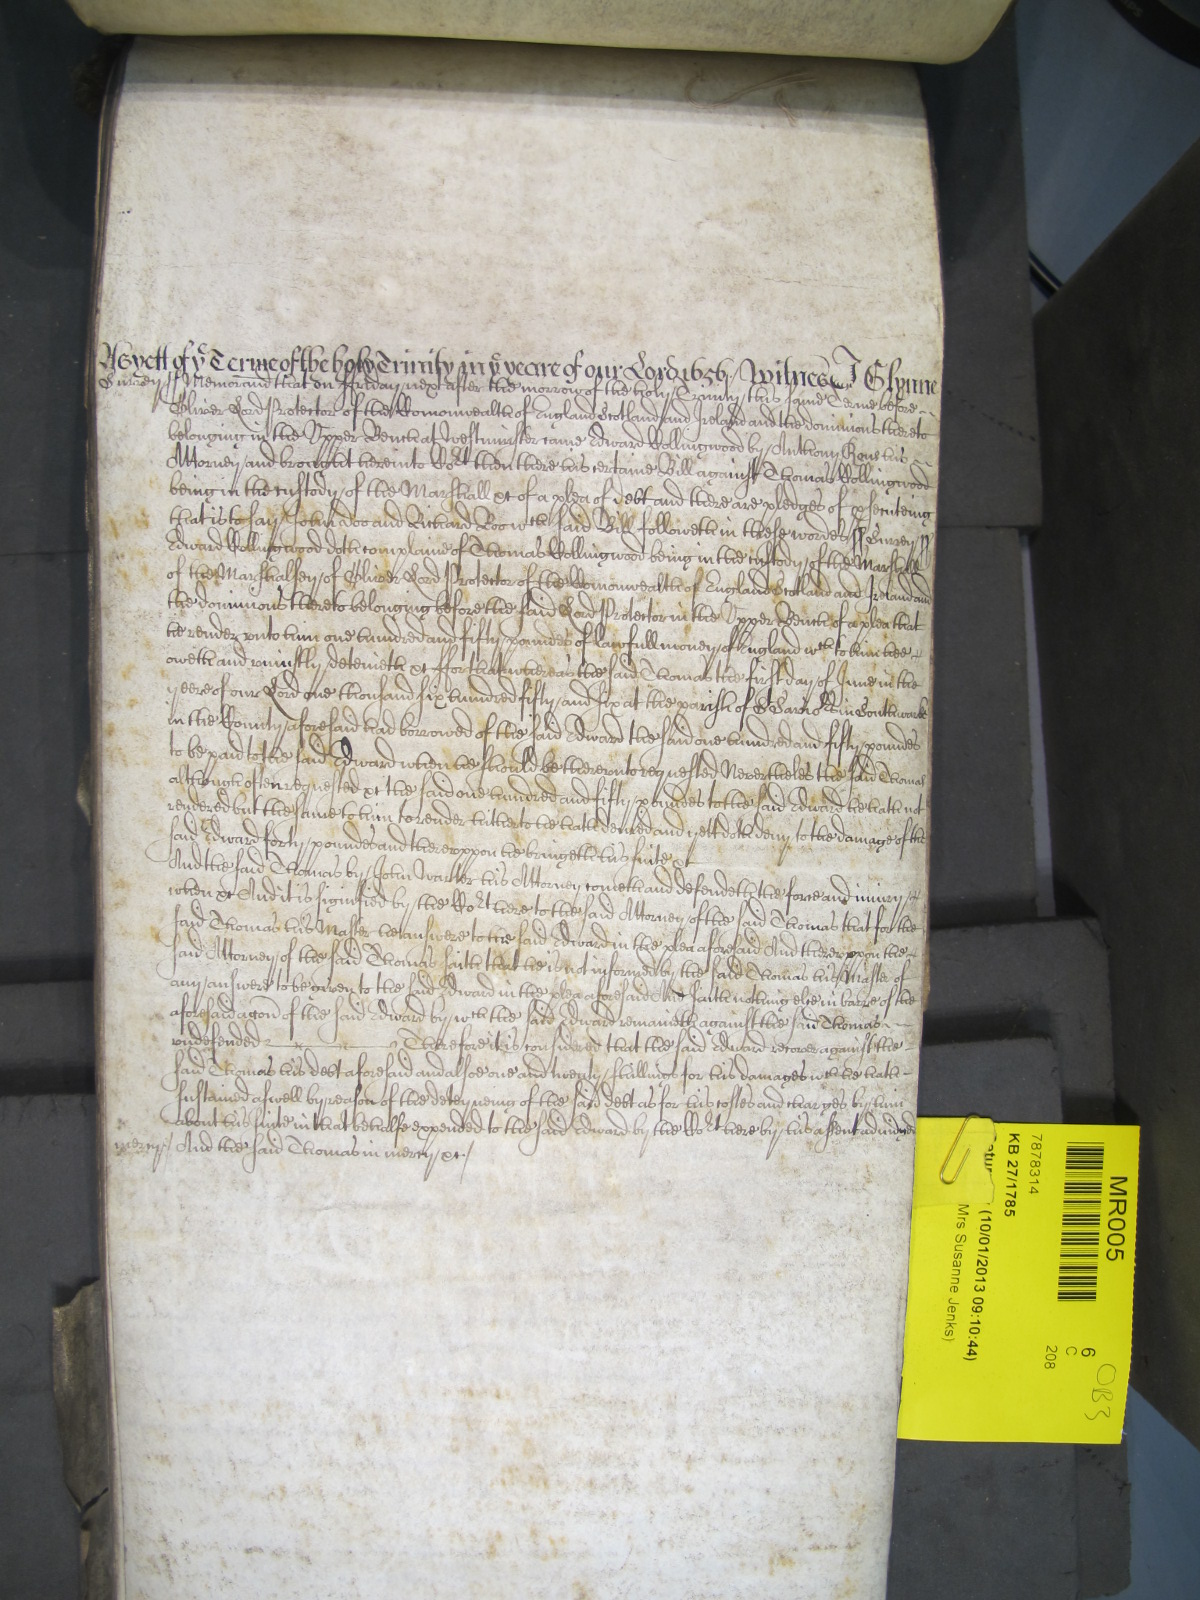 As yett of yͤ Terme of the holy Trinity in yͤ yeare of our Lord 1656 / Witnes J Glynne
Surrey ss Memorand that on Friday next after the morrow of the holy Trinity this same Terme before
Oliver Lord Protector of the Comonwealth of England Scotland and Ireland and the dominions thereto
belonging in the Upper Bench at Westminster came Edward Collingwood by Anthony his
Attorney and brought here into Coʳt then there his certaine Bill against Thomas Collingwood
being in the custody of the Marshall &c of a plea of debt and there are pledges of p̱secuteing
that is to say John Doo and Richard Roo wᶜʰ said Bill followeth in these wordes ss Surrey ss
Edward Collingwood doth complaine of Thomas Collingwood being in the custody of the Marshall
of the Marshalsey of Oliver Lord Protector of the Comonwealth of England Scotland and Ireland and
the dominions thereto belonging before the said Lord Protector in the Upper Bench of a plea that
he render vnto him one hundred and fifty poundes of lawfull money of England wᶜʰ to him hee
oweth and vniustly deteineth &c ffor that whereas the said Thomas the first day of June in the
yeere of our Lord one thousand six hundred fifty and six at the parish of Sᵗ Savioʳs in Southwarke
in the County aforesaid had borrowed of the said Edward the said one hundred and fifty poundes
to be paid to the said Edward when he should be therevnto requested Nevertheles the said Thomas
although often requested &c the said one hundred and fifty poundes to the said Edward he hath not
rendered but the same to him to render hitherto he hath denied and yett doth deny to the damage of the
said Edward forty poundes and therevppon he bringeth his suite &c
And the said Thomas by John Warter his Attorney cometh and defendeth the force and iniury
when &c And it is signified by the Coʳt here to the said Attorney of the said Thomas that for the
said Thomas his Master he answere to the said Edward in the plea aforesaid And therevppon the
said Attorney of the said Thomas saith that he is not informed by the said Thomas his Master of
any answere to be given to the said Edward in the plea aforesaid And saith nothing else in barre of the
aforesaid acc̄on of the said Edward by wᶜʰ the said Edward remaineth against the said Thomas
vndefended Therefore it is considered that the said Edward recover against the
said Thomas his debt aforesaid and alsoe one and twenty shillings for his damages wᶜʰ he hath
susteined aswell by reason of the deteyneing of the said debt as for his costes and charges by him
about his suite in that behalfe expended to the said Edward by the Coʳt here by his assent adiudged
mercy / And the said Thomas in mercy &c /
MR005
7878314
KB 27/1785
(10/01/2013 09:10:44)
Mrs Susanne Jenks)
6
C
208
OB3